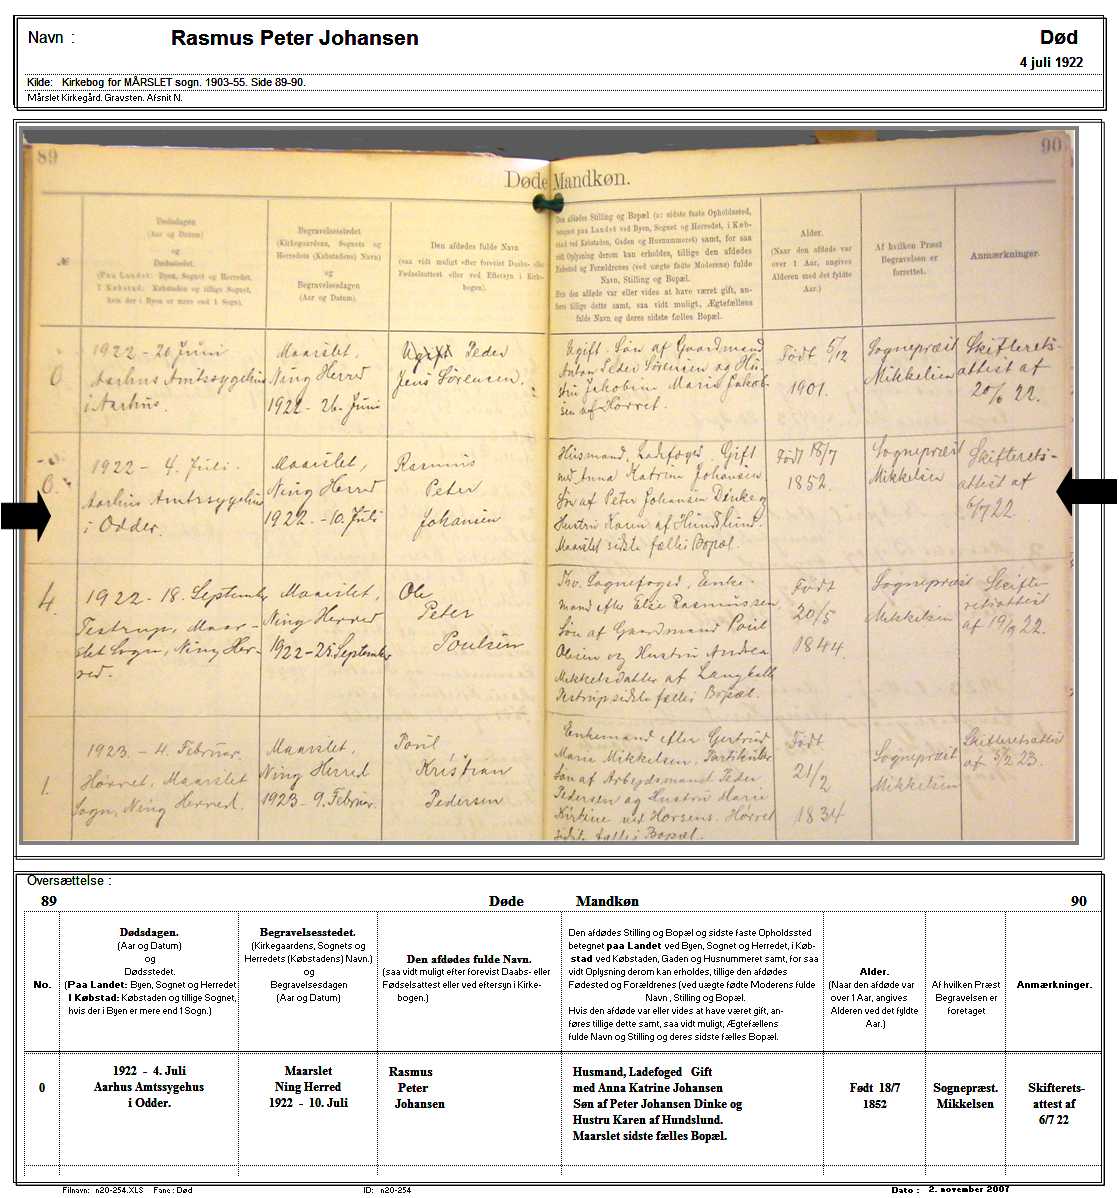 Navn :
Rasmus Peter Johansen
Død
4 juli 1922
Kilde: Kirkebog for MÅRSLET sogn. 1903-55. Side 89-90.
Mårslet Kirkegård. Gravsten. Afsnit N.
89
90
Døde Mandkøn.
№
Dødsdagen
(Aar og Datum)
og
Dødsstedet.
(Paa Landet: Byen, Sognet og Herredet,
I Købstad: Købstaden og tillige Sognet,
hvis der i Byen er mere end 1 Sogn).
Begravelsesstedet
(Kirkegaardens, Sognets og
Herredets (Købstadens) Navn)
og
Begravelsesdagen
(Aar og Datum).
Den afdødes fulde Navn
(saa vidt muligt efter forevist Daabs- eller
Fødselsattest eller ved Eftersyn i Kirke-
bogen).
Den afdødes Stilling og Bopæl (ɔ: sidste faste Opholdssted,
betegnet paa Landet ved Byen, Sognet og Herredet, i Køb-
stad ved Købstaden, Gaden og Husnummeret) samt, for saa
vidt Oplysning derom kan erholdes, tillige den afdødes
Fødested og Forældrenes (ved uægte fødte Moderens) fulde
Navn, Stilling og Bopæl.
Hvis den afdøde var eller vides at have været gift, an-
føres tillige dette samt, saa vidt muligt, Ægtefællens
fulde Navn og deres sidste fælles Bopæl.
Alder.
(Naar den afdøde var
over 1 Aar, angives
Alderen med det fyldte
Aar.)
Af hvilken Præst
Begravelsen er
forrettet.
Anmærkninger.
0.
1922 - 20 Juni
Aarhus Amtssygehus
i Aarhus.
Maarslet,
Ning Herred
1922 - 26. Juni
Ugift Peder
Jens Sørensen.
Ugift. Søn af Gaardmand
Anton Peder Sørensen og Hu-
stru Jakobine Marie Jakob-
sen af Hørret.
Født 5/12
1901.
Sognepræst
Mikkelsen
Skifterets-
attest af
20/6 22.
0.
1922 - 4. Juli.
Aarhus Amtssygehus
i Odder.
Maarslet,
Ning Herred
1922. - 10. Juli
Rasmus
Peter
Johansen
Husmand, Ladefoged. Gift
med Anna Katrine Johansen
Søn af Peter Johansen Dinke og
Hustru Karen af Hundslund.
Maarslet sidste fælles Bopæl.
Født 18/7
1852.
Sognepræst
Mikkelsen
Skifterets-
attest af
6/7 22
4.
1922 - 18. September
Testrup, Maar-
slet Sogn, Ning Her-
red.
Maarslet,
Ning Herred
1922 - 25. September
Ole
Peter
Poulsen
Fhv. Sognefoged, Enke-
mand efter Else Rasmussen
Søn af Gaardmand Poul
Olesen og Hustru Andrea
Mikkelsdatter af Langballe
Testrup sidste fælles Bopæl.
Født
20/5
1844.
Sognepræst
Mikkelsen
Skifte-
retsattest
af 19/9 22.
1.
1923. - 4. Februar.
Hørret, Maarslet
Sogn, Ning Herred.
Maarslet,
Ning Herred
1923 - 9. Februar.
Poul
Kristian
Pedersen
Enkemand efter Gertrud
Marie Mikkelsen. Partikulier
Søn af Arbejdsmand Peder
Pedersen og Hustru Marie
Kirstine ved Horsens. Hørret
sidste fælles Bopæl.
Født
21/2
1834
Sognepræst
Mikkelsen
Skifteretsattest
af 5/2 23.
Oversættelse :
89
Døde Mandkøn
90
No.
Dødsdagen.
(Aar og Datum)
og
Dødsstedet.
(Paa Landet: Byen, Sognet og Herredet
I Købstad: Købstaden og tillige Sognet,
hvis der i Byen er mere end 1 Sogn.)
Begravelsesstedet.
(Kirkegaardens, Sognets og
Herredets (Købstadens) Navn.)
og
Begravelsesdagen
(Aar og Datum)
Den afdødes fulde Navn.
(saa vidt muligt efter forevist Daabs- eller
Fødselsattest eller ved eftersyn i Kirke-
bogen.)
Den afdødes Stilling og Bopæl og sidste faste Opholdssted
betegnet paa Landet ved Byen, Sognet og Herredet, i Køb-
stad ved Købstaden, Gaden og Husnummeret samt, for saa
vidt Oplysning derom kan erholdes, tillige den afdødes
Fødested og Forældrenes (ved uægte fødte Moderens fulde
Navn , Stilling og Bopæl.
Hvis den afdøde var eller vides at have været gift, an-
føres tillige dette samt, saa vidt muligt, Ægtefællens
fulde Navn og Stilling og deres sidste fælles Bopæl.
Alder.
(Naar den afdøde var
over 1 Aar, angives
Alderen ved det fyldte
Aar.)
Af hvilken Præst
Begravelsen er
foretaget
Anmærkninger.
0
1922 - 4. Juli
Aarhus Amtssygehus
i Odder.
Maarslet
Ning Herred
1922 - 10. Juli
Rasmus
Peter
Johansen
Husmand, Ladefoged Gift
med Anna Katrine Johansen
Søn af Peter Johansen Dinke og
Hustru Karen af Hundslund.
Maarslet sidste fælles Bopæl.
Født 18/7
1852
Sognepræst.
Mikkelsen
Skifterets-
attest af
6/7 22
Filnavn: n20-254.XLS Fane : Død
ID: n20-254
Dato : 2. november 2007